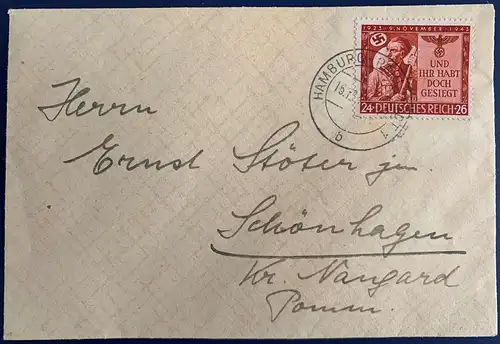 1923 · 9. NOVEMBER · 1943
UND
IHR HABT
DOCH
GESIEGT
24 + DEUTSCHES REICH + 26
HAMBURG
b
Herrn
Ernst Stöter jr.
Schönhagen
Kr. Naugard
Pomm.